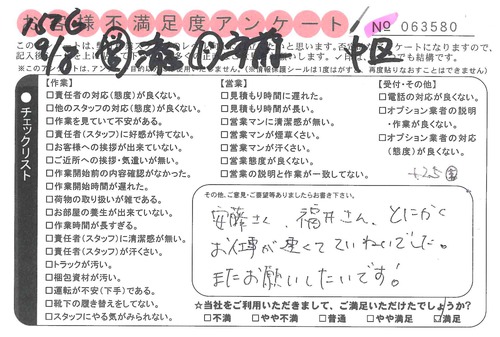 お客様不満足度アンケート
No 063580
【作業】
□責任者の対応(態度)が良くない。
□他のスタッフの対応(態度)が良くない。
□作業を見ていて不安がある。
□責任者(スタッフ)に好感が持てない。
□お客様への挨拶が出来ていない。
□ご近所への挨拶・気遣いが無い。
□作業開始前の内容確認がなかった。
□作業開始時間が遅れた。
□荷物の取り扱いが雑である。
□お部屋の養生が出来ていない。
□作業時間が長すぎる。
□責任者(スタッフ)に清潔感が無い。
□責任者(スタッフ)が汗くさい。
□トラックが汚い。
□梱包資材が汚い。
□運転が不安(下手)である。
□靴下の履き替えをしてない。
□スタッフにやる気がみられない。
【営業】
□見積もり時間に遅れた。
□見積もり時間が長い。
□営業マンに清潔感が無い。
□営業マンが煙草くさい。
□営業マンが汗くさい。
□営業態度が良くない。
□営業の説明と作業が一致してない。
【受付・その他】
□電話の対応が良くない。
□オプション業者の説明
・作業が良くない。
□オプション業者の対応
(態度)が良くない。
チェックリスト
その他、ご意見・ご要望等ありましたらお書き下さい。
安藤さん、福井さん、とにかく
お仕事が速くてていねいでした。
またお願いしたいです!
★当社をご利用いただきまして、ご満足いただけたでしょうか?
□不満 □やや不満 □普通 □やや満足 □満足